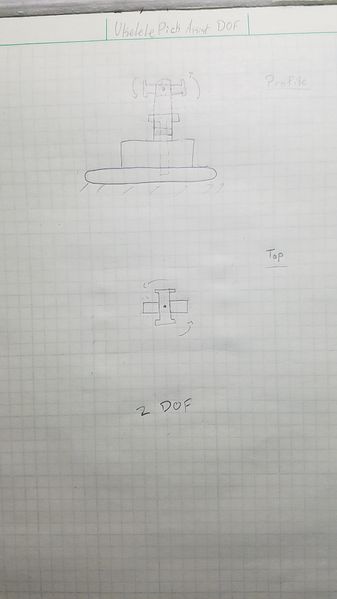 Ukelele Pick Assist DOF
Profile
Top
2 DOF